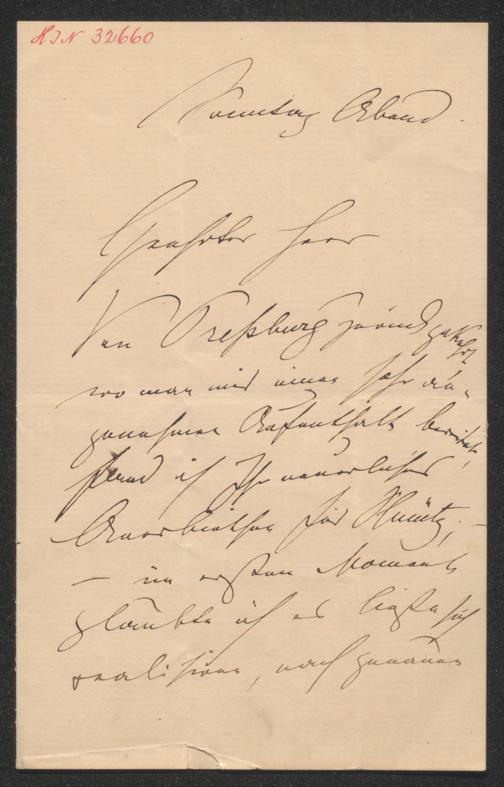 HIN 32660
Sonntag Abend.
Geehrter Herr
Von Preßburg zurück gekehrt
wo man mir einen sehr an-
genehmen Aufenthalt bereitet,
fand ich Ihr neuerliches
Anerbiethen für
– im ersten Moment
glaubte ich es ließe sich
realisiren, nach genauer